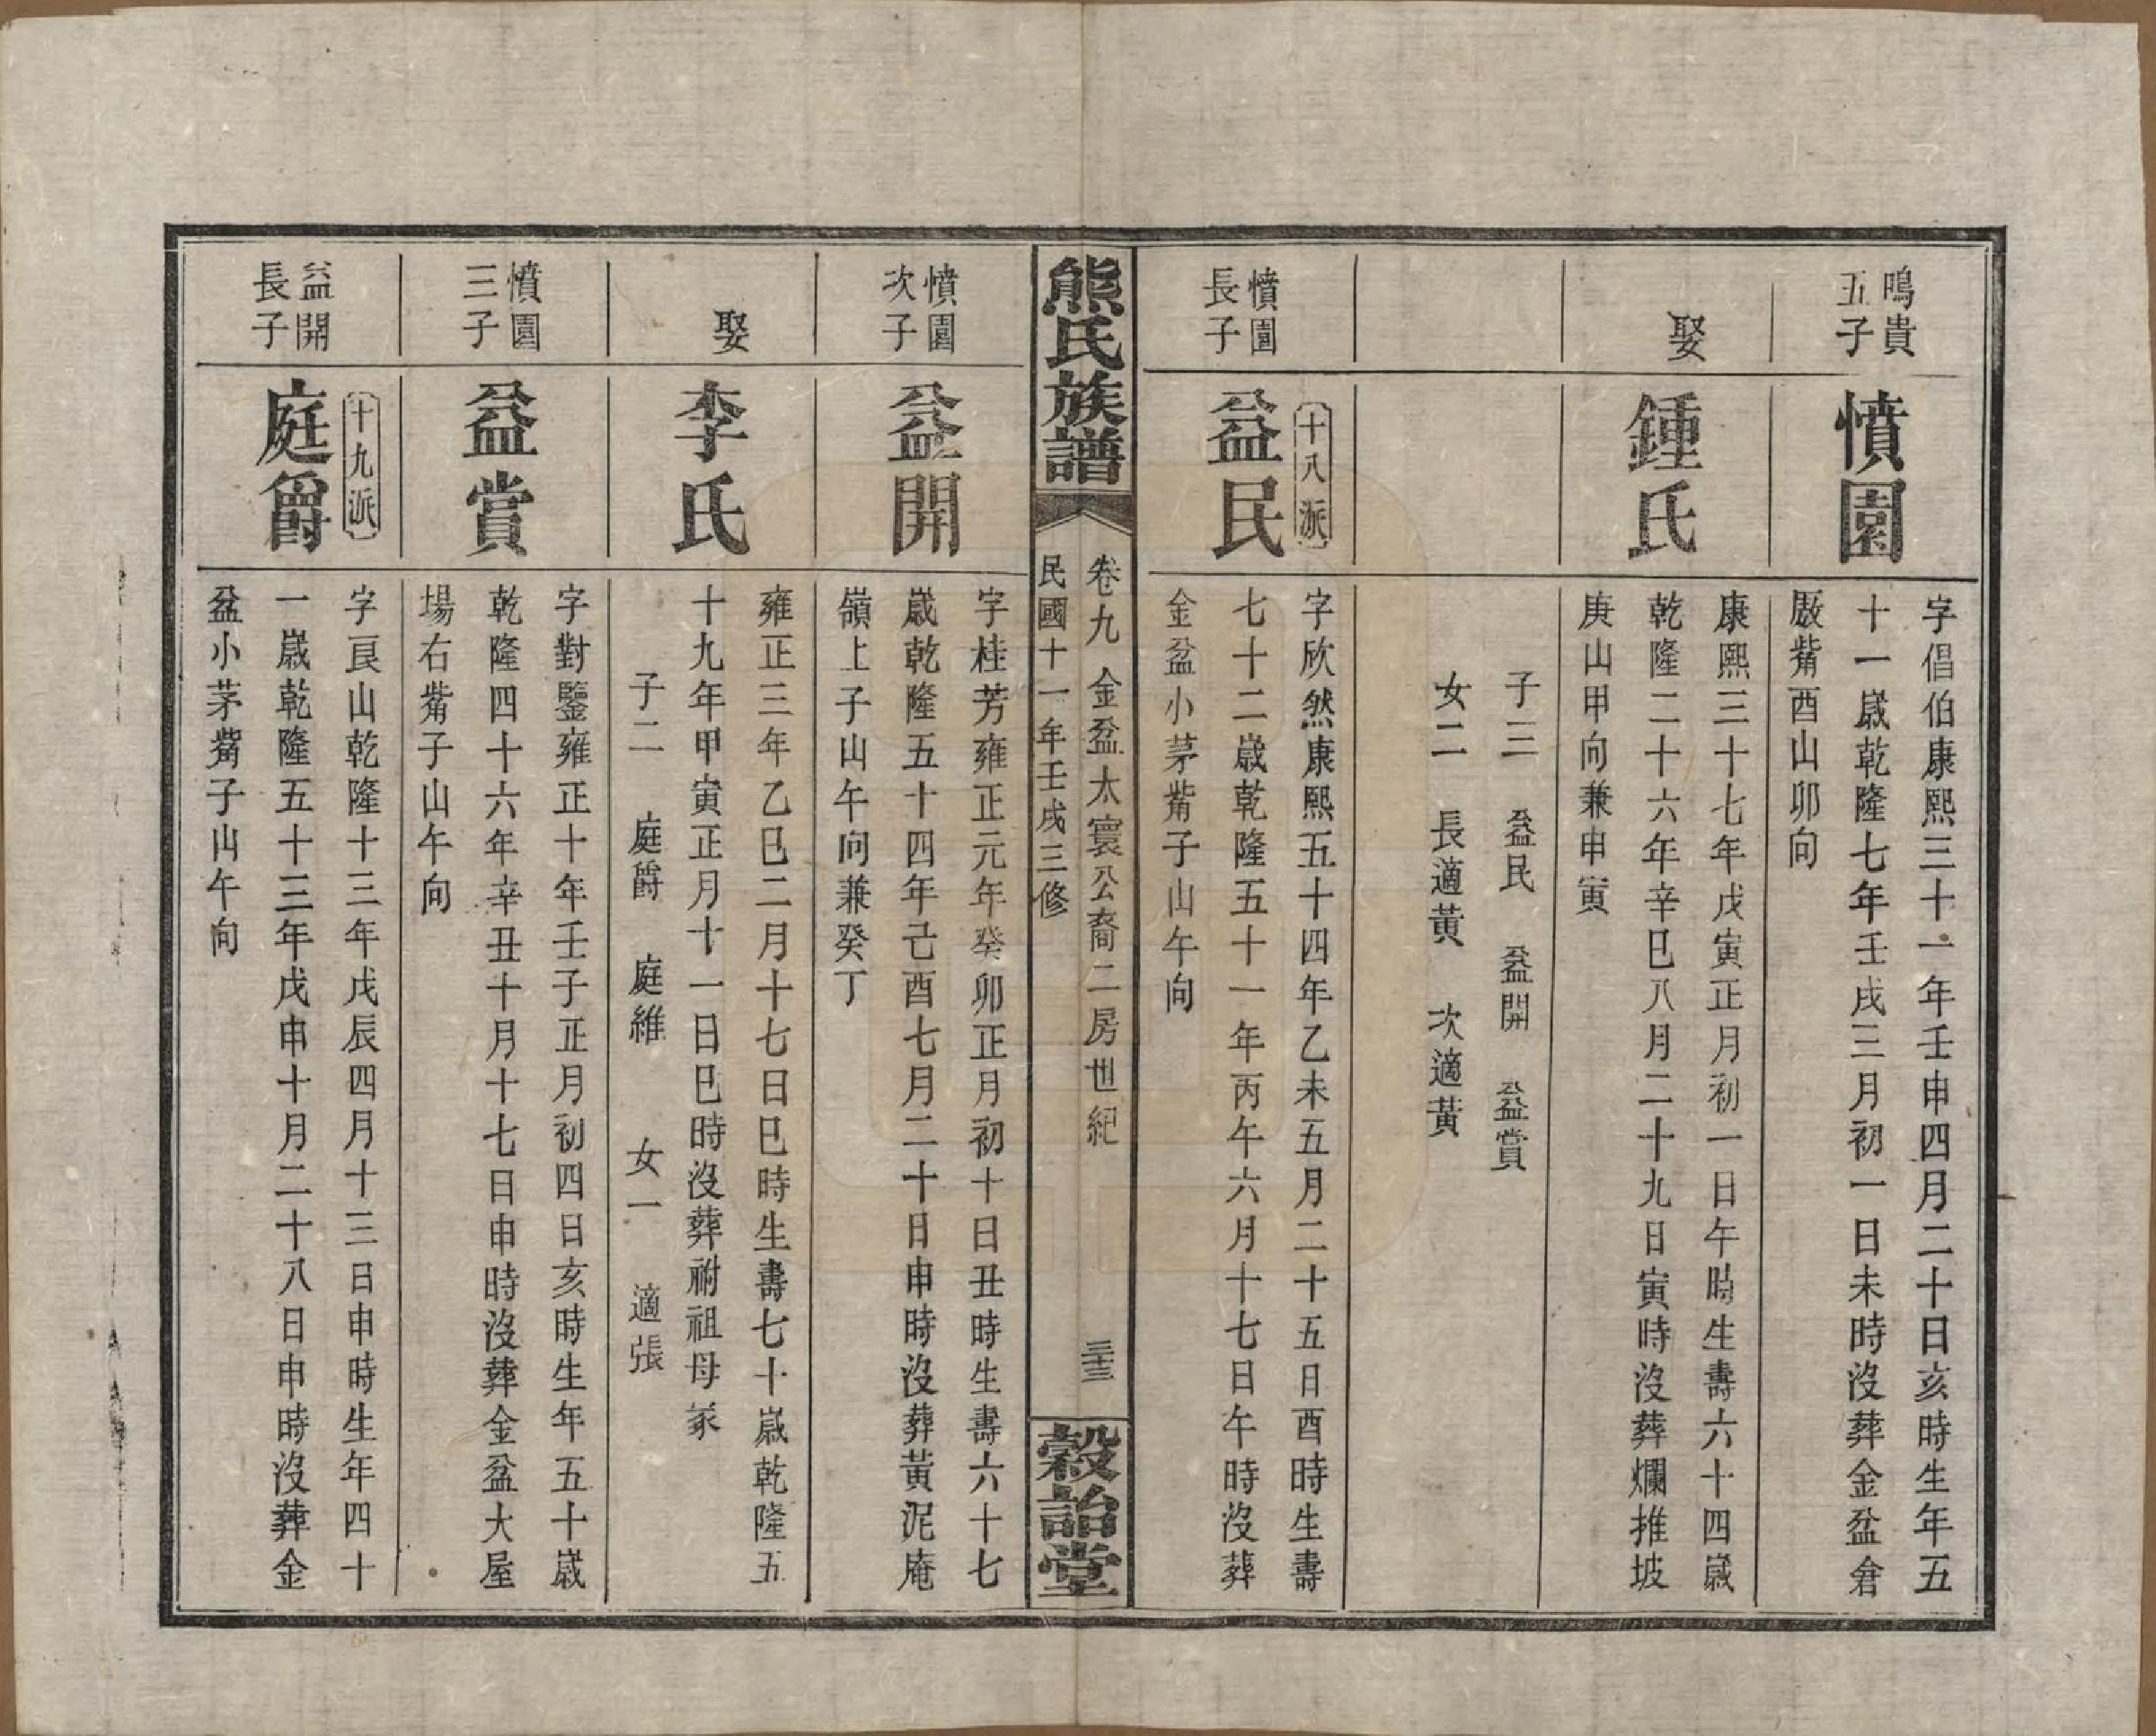 鳴貴
五子
憤園
字倡伯康熙三十一年壬申四月二十日亥時生年五
十一歲乾隆七年壬戌三月初一日未時沒葬金盆倉
厫觜酉山卯向
娶
鍾氏
康熙三十七年戊寅正月初一日午時生壽六十四歲
乾隆二十六年辛巳八月二十九日寅時沒葬爛推坡
庚山甲向兼申寅
子三 益民 益開 益賞
女二 長適黃 次適黃
憤園
長子
十八派
益民
字欣然康熙五十四年乙未五月二十五日酉時生壽
七十二歲乾隆五十一年丙午六月十七日午時沒葬
金盆小茅觜子山午向
熊氏族譜
卷九 金盆太寰公裔二房世紀
民國十一年壬戌三修
三十三
穀詒堂
憤園
次子
益開
字桂芳雍正元年癸卯正月初十日丑時生壽六十七
歲乾隆五十四年己酉七月二十日申時沒葬黃泥庵
嶺上子山午向兼癸丁
娶
李氏
雍正三年乙巳二月十七日巳時生壽七十歲乾隆五
十九年甲寅正月十一日巳時沒葬祔祖母冢
子二 庭爵 庭維 女一 適張
憤園
三子
益賞
字對鑒雍正十年壬子正月初四日亥時生年五十歲
乾隆四十六年辛丑十月十七日申時沒葬金盆大屋
場右觜子山午向
益開
長子
十九派
庭爵
字良山乾隆十三年戊辰四月十三日申時生年四十
一歲乾隆五十三年戊申十月二十八日申時沒葬金
盆小茅觜子山午向